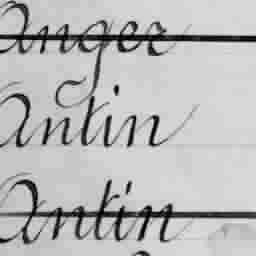 Anger
Antin
Antin